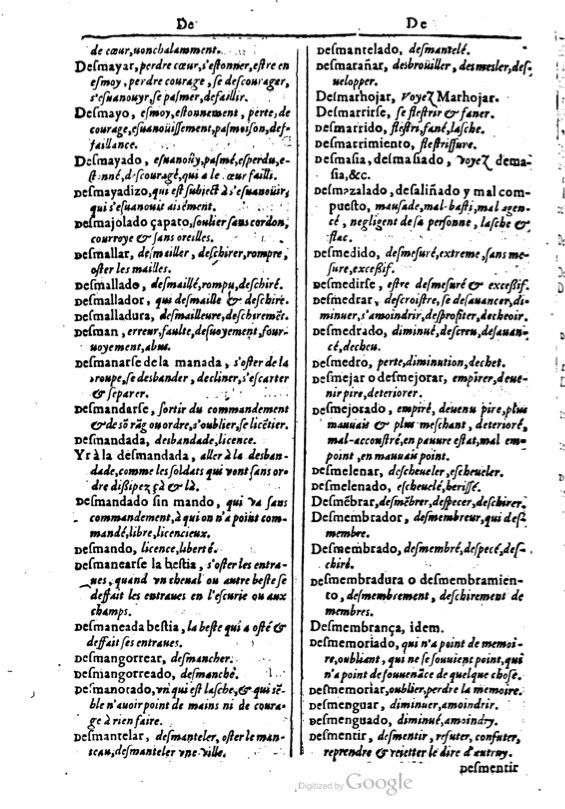 De
de cœur, nonchalamment.
Desmayar, perdre cœur, s'estonner, estre en
esmoy, perdre courage, se descourager,
s'esuanouyr, se pasmer, defaillir.
Desmayo, esmoy, estonnement, perte, de
courage, esuanoüissement, pasmoison, def-
faillance.
Desmayado, esuanoüy, pasmé, esperdu, e-
stonné, descouragé, qui a le cœur failli.
Desmayadizo, qui est subject à s'esuanoüir,
qui s'esuanouit aisément.
Desmajolado çapato, soulier sans cordon,
courroye & sans oreilles.
Desmallar, desmailler, deschirer, rompre,
oster les mailles.
Desmallado, desmaillé, rompu, deschiré.
Desmallador, qui desmaille & deschire.
Desmalladura, desmailleure, deschiremẽt.
Desman, erreur, faulte, desuoyement, four-
uoyement, abus.
Desmanarse de la manada, s'oster de la
troupe, se desbander, decliner, s'escarter
& separer.
Desmandarse, sortir du commandement
& de sõ rãg ou ordre, s'oublier, se licẽtier.
Desmandada, desbandade, licence.
Yr à la desmandada, aller à la desban-
dade, comme les soldats qui vont sans or-
dre dißipez çà & là.
Desmandado sin mando, qui va sans
commandement, à qui on n'a point com-
mandé, libre, licencieux.
Desmando, licence, liberté.
Desmanearse la bestia, s'oster les entra-
ues, quand vn cheual ou autre beste se
deffait les entraues en l'escurie ou aux
champs.
Desmaneada bestia, la beste qui a osté &
deffait ses entraues.
Desmangorrear, desmancher.
Desmangorreado, desmanché.
Desmanotado, vn qui est lasche, & qui sẽ-
ble n'auoir point de mains ni de coura-
ge à rien faire.
Desmantelar, desmanteler, oster le man-
teau, desmanteler vne ville.
De
Desmantelado, desmantelé.
Desmarañar, desbroüiller, desmesler, des-
uelopper.
Desmarhojar, Voyez Marhojar.
Desmarrirse, se flestrir & faner.
Desmarrido, flestri, fané, lasche.
Desmarrimiento, flestrissure.
Desmasia, desmasiado, voyez dema-
sia, &c.
Desmazalado, desaliñado y mal com-
puesto, mausade, mal-basti, mal agen-
cé, negligent de sa personne, lasche &
flac.
Desmedido, desmesuré, extreme, sans me-
sure, exceßif.
Desmedirse, estre desmesuré & exceßif.
Desmedrar, descroistre, se desauancer, di-
minuer, s'amoindrir, desprofiter, decheoir.
Desmedrado, diminué, descreu, desauan-
cé, decheu.
Desmedro, perte, diminution, dechet.
Desmejar o desmejorar, empirer, deue-
nir pire, deteriorer.
Desmejorado, empiré, deuenu pire, plus
mauuais & plus meschant, deterioré,
mal-accoustré, en pauure estat, mal em-
point, en mauuais point.
Desmelenar, descheueler, escheueler.
Desmelenado, escheuelé, herissé.
Desmẽbrar, desmẽbrer, despecer, deschirer.
Desmembrador, desmembreur, qui des-
membre.
Desmembrado, desmembré, despecé, des-
chiré.
Desmembradura o desmembramien-
to, desmembrement, deschirement de
membres.
Desmembrança, idem.
Desmemoriado, qui n'a point de memoi-
re, oubliant, qui ne se souuient point, qui
n'a point de souuenãce de quelque chose.
Desmemoriar, oublier, perdre la memoire.
Desmenguar, diminuer, amoindrir.
Desmenguado, diminué, amoindry.
Desmentir, desmentir, refuter, confuter,
reprendre & reietter le dire d'autruy.
Desmentir
Digitized by Google